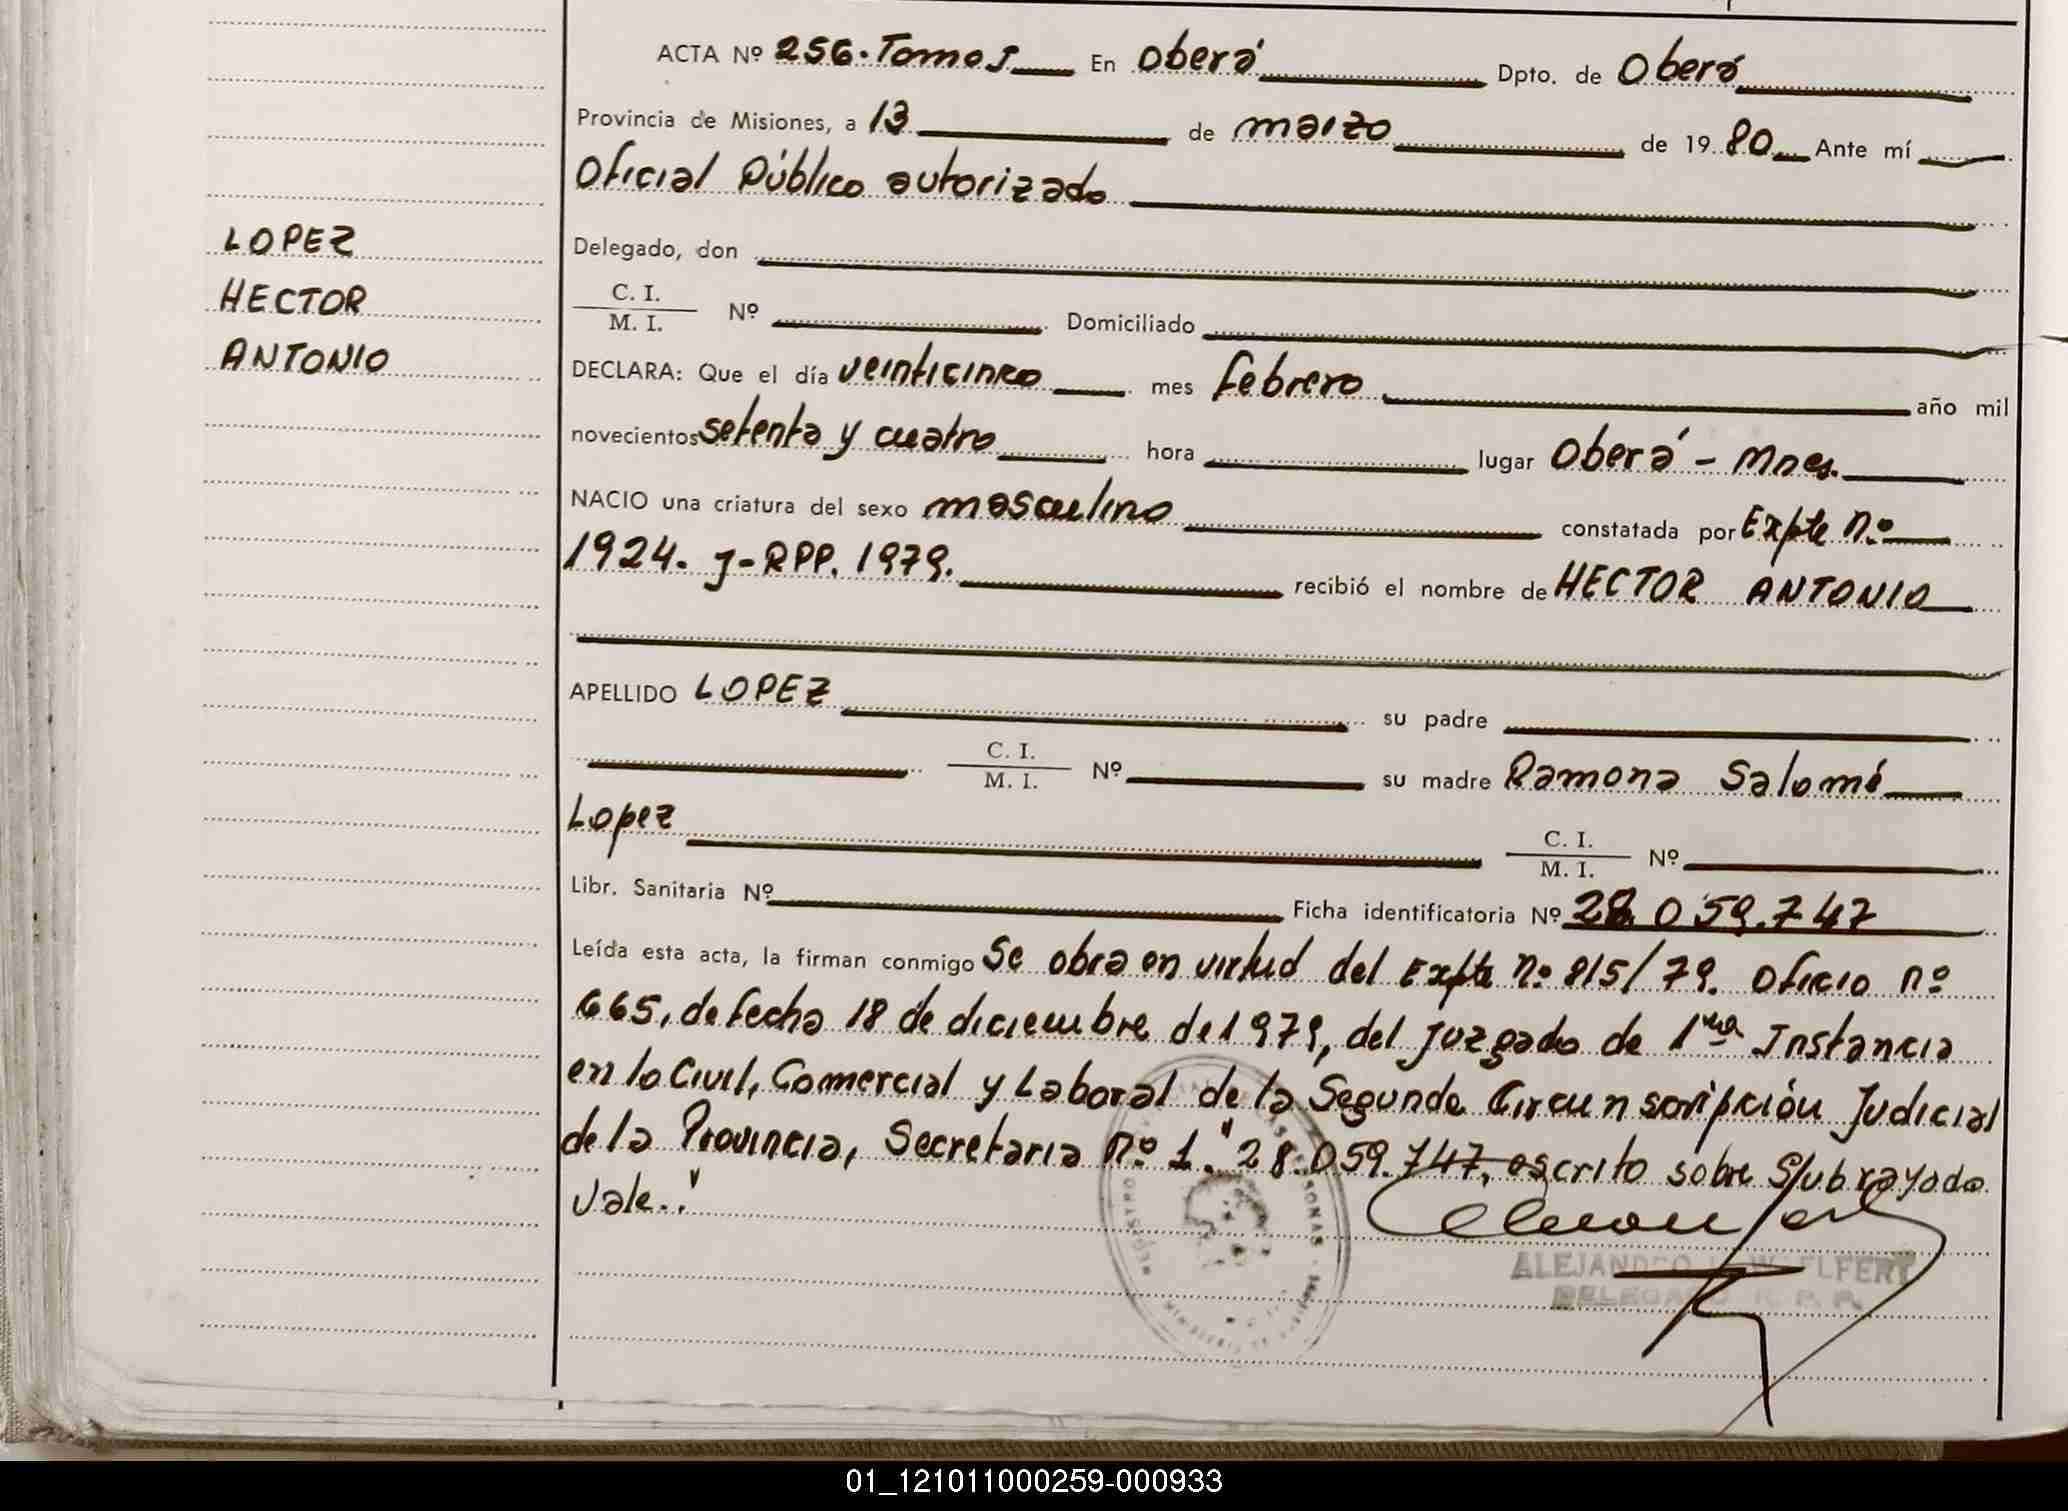 ACTA Nº 256. Tomo I En Oberá Dpto. de Oberá
Provincia de Misiones, a 13 de marzo de 1980 Ante mí
Oficial Público autorizado
LOPEZ
HECTOR
ANTONIO
Delegado, don
C. I.
M. I. Nº Domiciliado
DECLARA: Que el día veinticinco mes febrero año mil
novecientos setenta y cuatro hora lugar Oberá - Mnes.
NACIO una criatura del sexo masculino constatada por Expte nº
1924. J-RPP. 1979. recibió el nombre de HECTOR ANTONIO
APELLIDO LOPEZ su padre
C. I.
M. I. Nº su madre Ramona Salomé
Lopez C. I.
M. I. Nº
Libr. Sanitaria Nº Ficha identificatoria Nº 28.059.747
Leída esta acta, la firman conmigo Se obra en virtud del Expte nº 815/79. Oficio nº
665, de fecha 18 de diciembre de 1979, del Juzgado de 1ra Instancia
en lo Civil, Comercial y Laboral de la Segunda Circunscripción Judicial
de la Provincia, Secretaria nº 1. "28.059.747, escrito sobre S/ubrayado
Vale.."
ALEJANDRO
DELEGADO R. P. P.
01_121011000259-000933